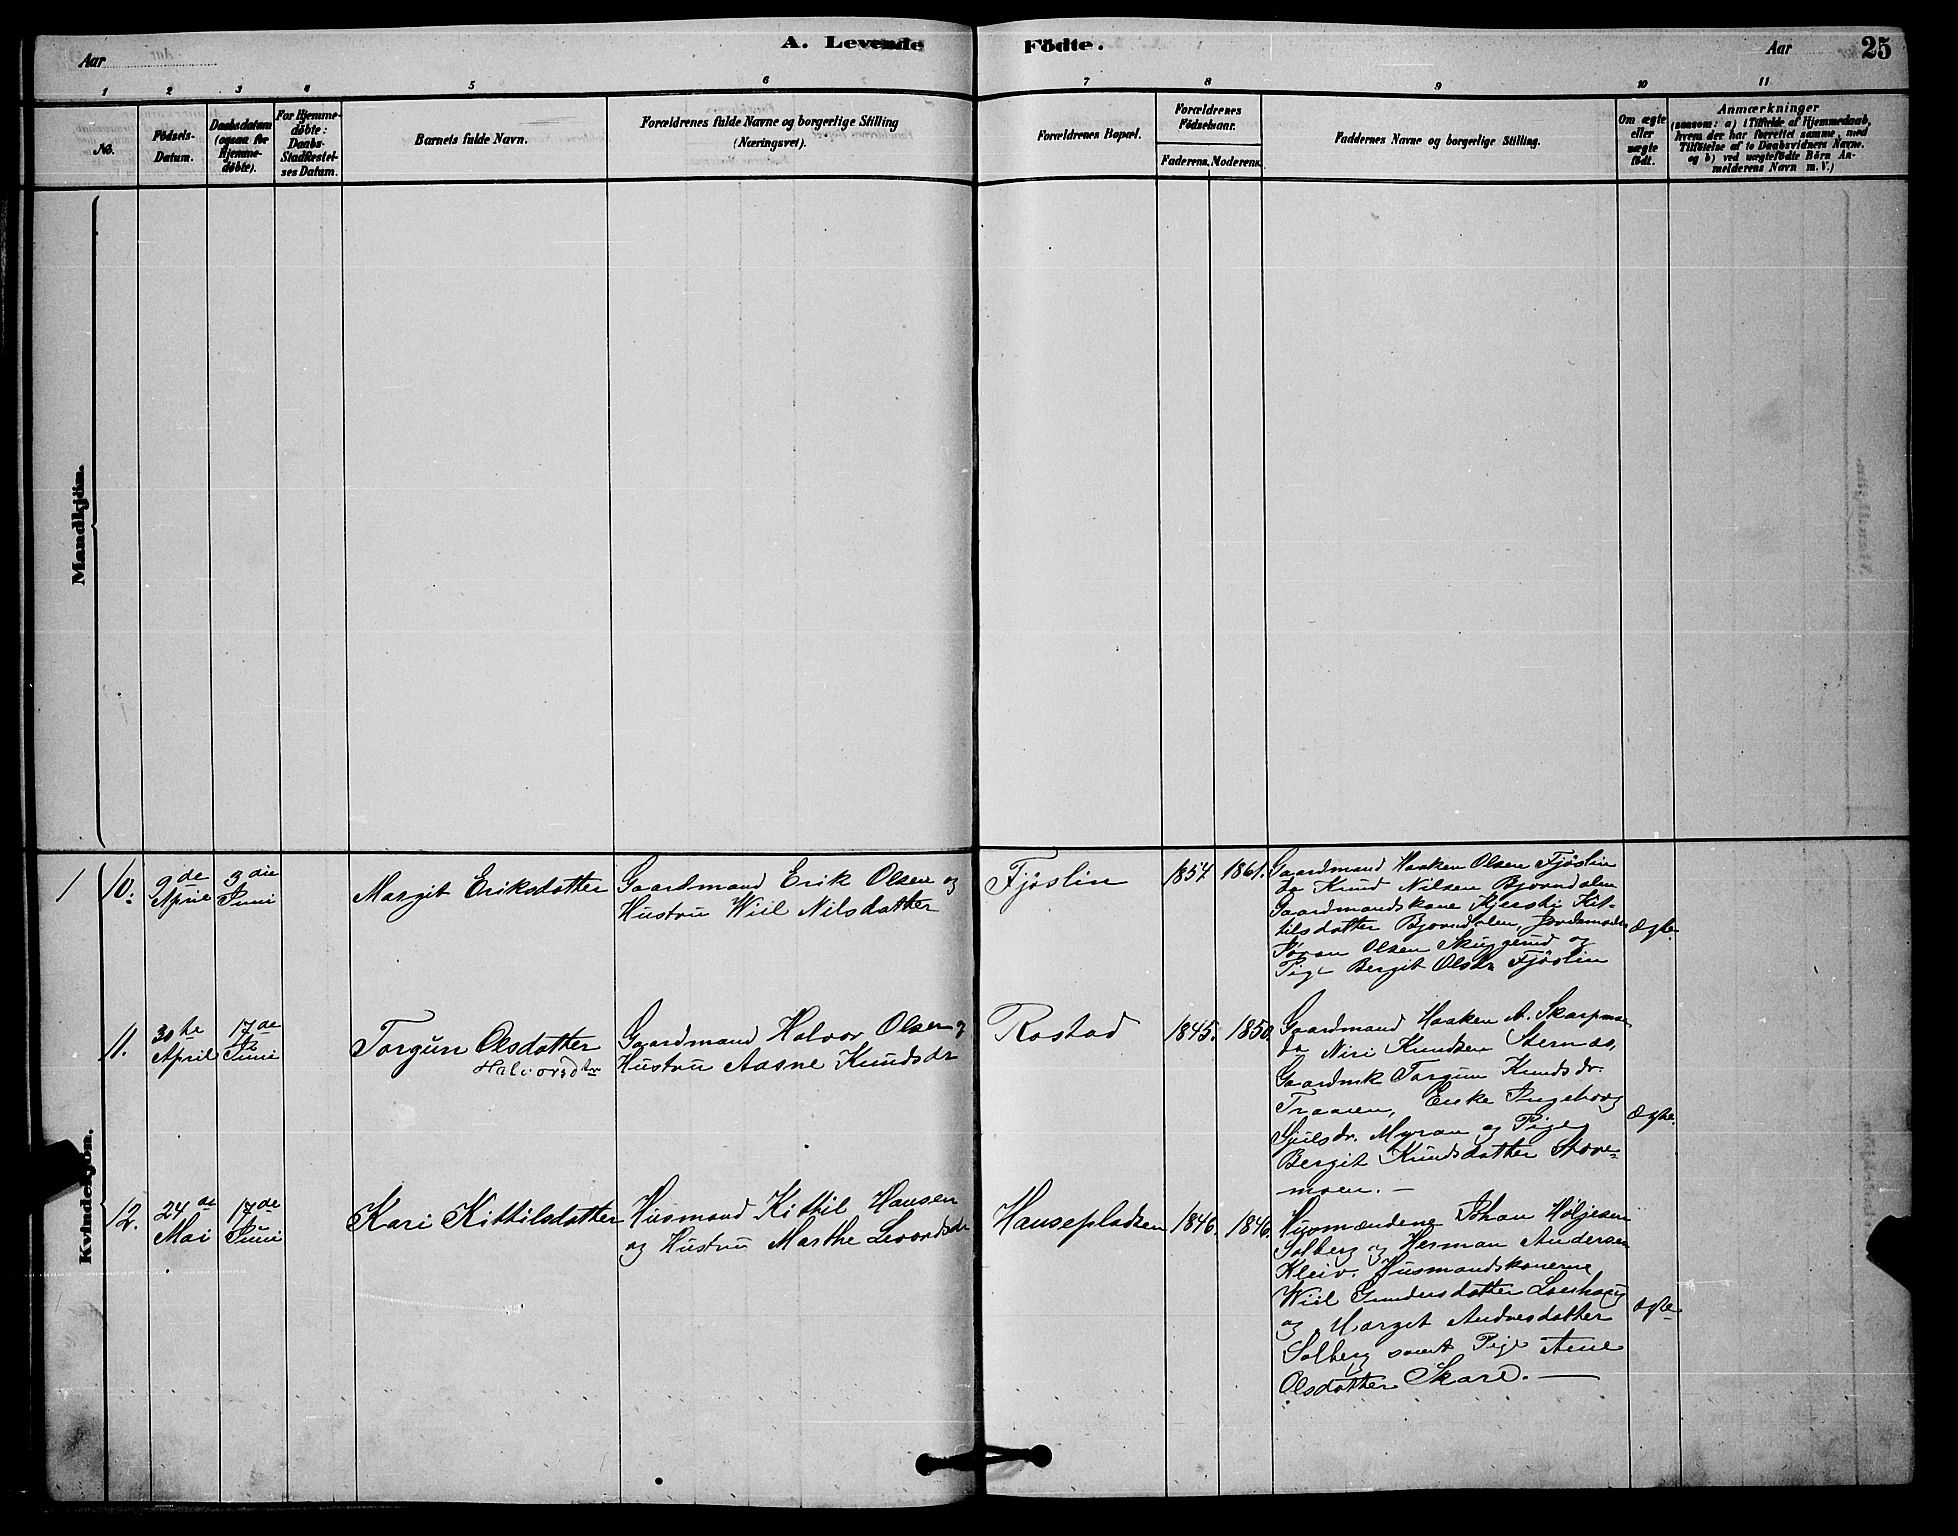 A. Levende Födte.
Aar
Aar
25
1 2 3 4 5 6 7 8 9 10 11
No.
Födsels-
Datum.
Daabsdatum
(ogsaa for
Hjemme-
døbte).
For Hjemme-
døbte:
Daabs-
Stadfæstel-
ses Datum.
Barnets fulde Navn.
Forældrenes fulde Navne og borgerlige Stilling
(Næringsvei).
Forældrenes Bopæl.
Forældrenes
Födselsaar.
Faderens. Moderens.
Faddernes Navne og borgerlige Stilling.
Om ægte
eller
uægte
født.
Anmærkninger
(saasom: a) i Tilfælde af Hjemmedaab,
hvem der har forrettet samme, med
Tilföielse af to Daabsvidners Navne.
og b) ved uægtefödte Börn An-
melderens Navn m.V.)
Mandkjön.
Kvindekjön.
1
10.
9de
April
3die
Juni
Margit Eriksdatter
Gaardmand Erik Olsen og
Hustru Wiil Nilsdatter
Fjøslin
1857
1861.
Gaardmand Haaken Olsen Fjøslin
do Knud Nilsen Bjørndalen
Gaardmandskone Kjersti Kit-
tilsdatter Bjørndalen, Jordemoder
Olsen Skuggerud og
Pige Bergit Olsdr Fjøslin
Ægte.
11.
30te
April
17de
Juni
Torgun Olsdatter
Halvorsdtr
Gaardmand Halvor Olsen og
Hustru Aasne Knudsdr
Rostad
1845.
1850.
Gaardmand Haaken A. Skarpmo
do Niri Knudsen Sternæs,
Gaardmk Torgun Knudsdr.
Traaen, Enke Ingeborg
Gjulsdr. Myran og Pige
Bergit Knudsdatter Støve-
moen. —
Ægte.
12.
24de
Mai
17de
Juni
Kari Kittilsdatter
Husmand Kittil Hansen
og Hustru Marthe Levordsdr
Hansepladsen
1846.
1846.
Husmændene Johan Høljesen
Solberg og Herman Andersen
Kleiv. Husmandskonerne
Wiil Gundersdatter Loeshaug
og Marget Andresdatter
Solberg samt Pige Anne
Olsdatter Skare. —
Ægte